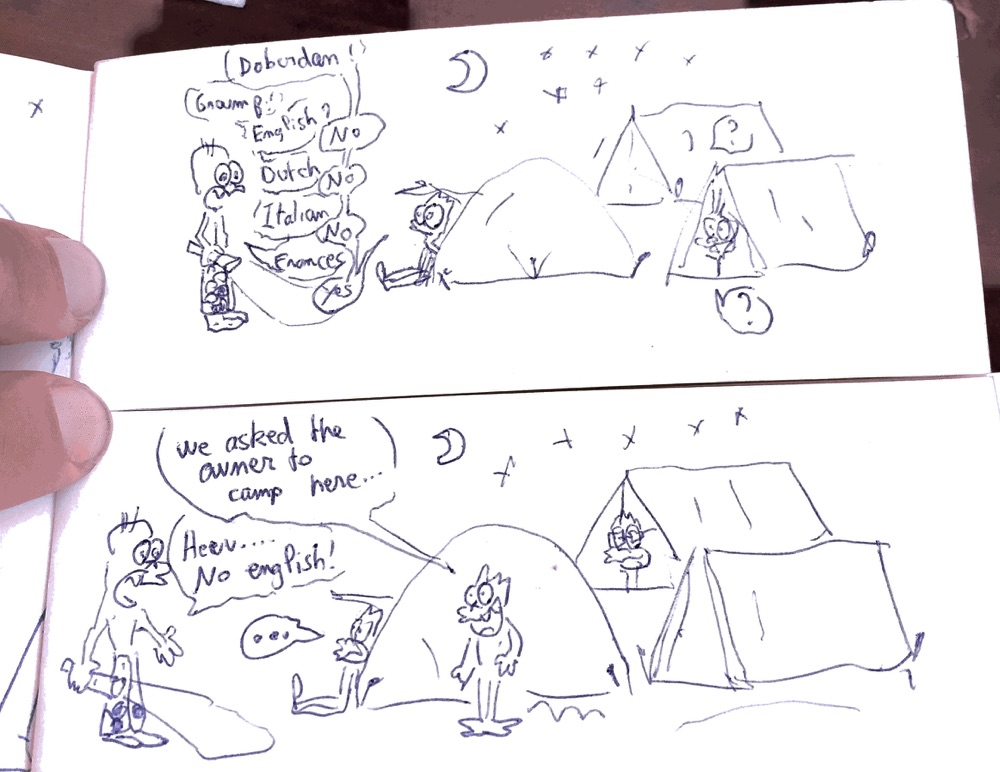 Doberdan!
English?
No
Dutch
No
Italian
No
Frances
Yes
?
?
we asked the
owner to
camp here...
Heuu....
No english!
...